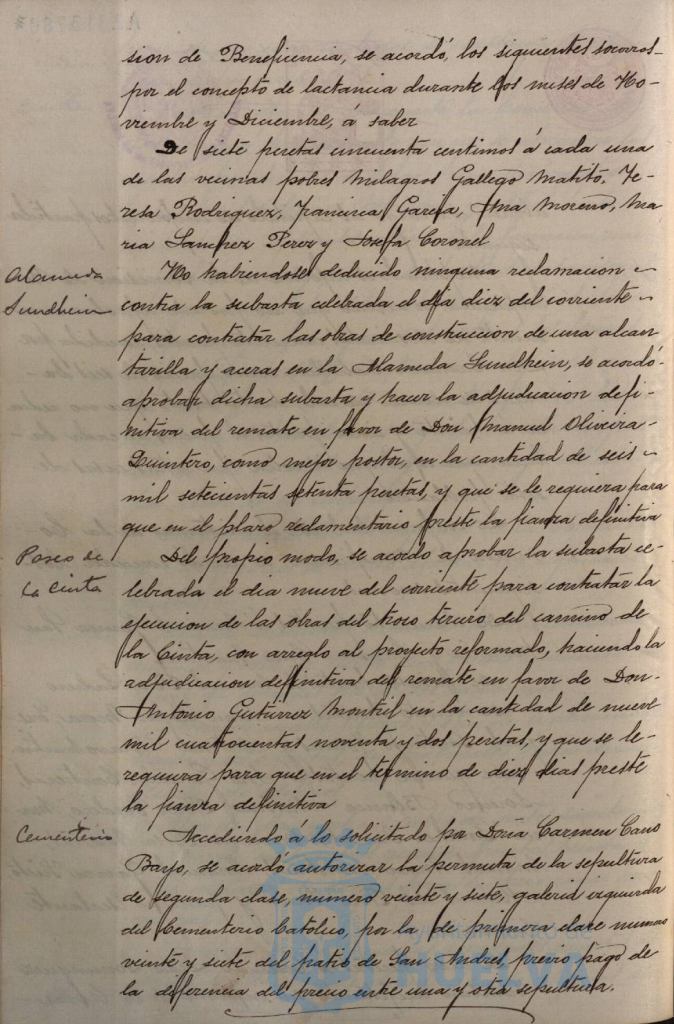 sion de Beneficencia, se acordó, los siguientes socorros
por el concepto de lactancia durante los meses de No-
viembre y Diciembre, á saber
De siete pesetas cincuenta centimos á cada una
de las vecinas pobres Milagros Gallego Matito, Te-
resa Rodriguez, Francisca Garcia, Ana Moreno, Ma
ria Sanchez Perez y Josefa Coronel
Alameda
Sundhein
No habiendose deducido ninguna reclamacion
contra la subasta celebrada el dia diez del corriente
para contratar las obras de construccion de una alcan
tarilla y aceras en la Alameda Sundhein, se acordó
aprobar dicha subasta y hacer la adjudicacion defi-
nitiva del remate en favor de Don Manuel Oliveira
Quintero, como mejor postor, en la cantidad de seis
mil setecientas setenta pesetas, y que se le requiera para
que en el plazo reclamentario preste la fianza definitiva
Paseo de
la Cinta
Del propio modo, se acordo aprobar la subasta ce-
lebrada el dia nueve del corriente para contratar la
ejecucion de las obras del trozo tercero del camino de
la Cinta, con arreglo al proyecto reformado, haciendo la
adjudicacion definitiva del remate en favor de Don
Antonio Gutierrez Montiel en la cantidad de nueve
mil cuatrocientas noventa y dos pesetas, y que se le
requiera para que en el termino de diez dias preste
la fianza definitiva
Cementerio
Accediendo á lo solicitado por Doña Carmen Cano
Bayo, se acordó autorizar la permuta de la sepultura
de segunda clase, numero veinte y siete, galeria izquierda
del Cementerio Católico, por la de primera clase numero
veinte y siete del patio de San Andres, previo pago de
la diferencia del precio entre una y otra sepultura.
HUELVA